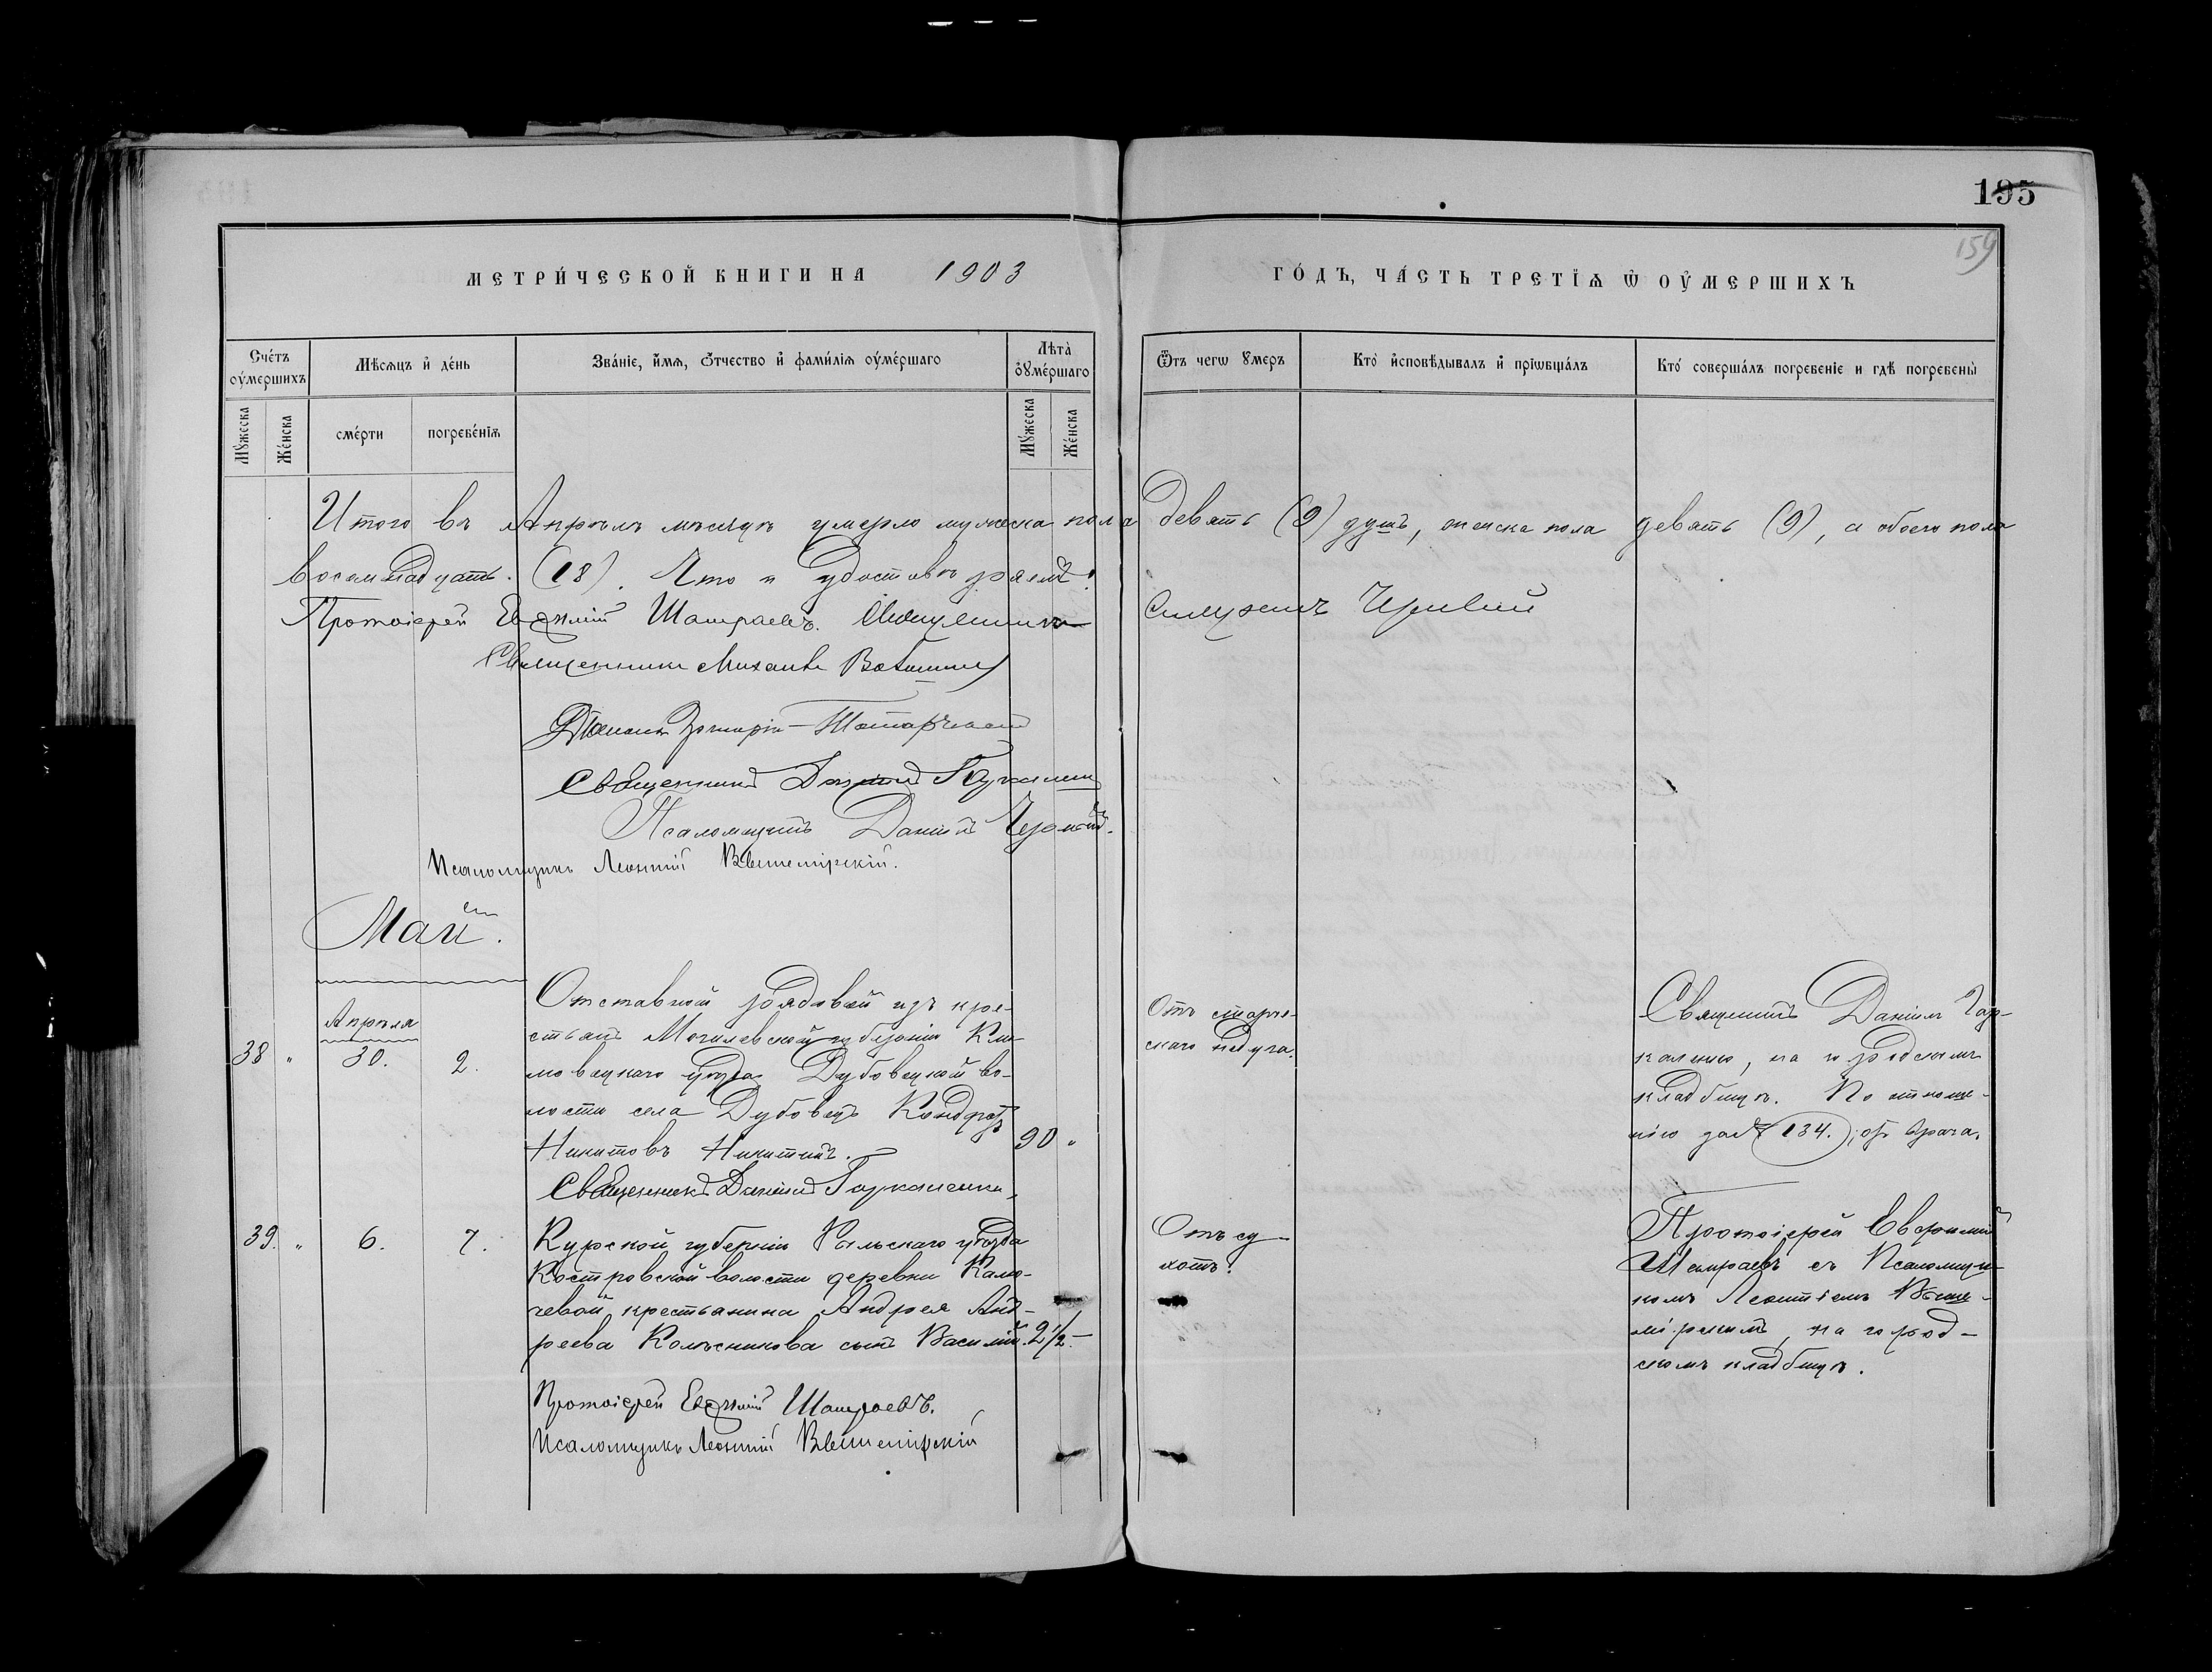 195
159
МЕТРИ́ЧЕСКОЙ КНИГИ НА 1903 ГО́ДЪ, ЧА́СТЬ ТРЕТІѦ Ѡ ОУ҆МЕРШИХЪ
Сче́тъ оу҆ме́ршихъ
Мѣсѧцъ и҆ де́нь
Зва́ніе, и҆́мѧ, ѻ҆́тчество и҆ фами́лія оу҆ме́ршаго
Лѣта̀ оу҆ме́ршаго
Ѿ чегѡ ᲂумеръ
Кто̀ и҆сповѣ́дывалъ и҆ прїѡбща́лъ
Кто́ соверша́лъ погребе́ніе и гдѣ̀ погребены̀
Мꙋ́жеска
Же́нска
сме́рти
погребе́нїѧ
Мꙋ́жеска
Же́нска
Итого въ Апрѣлѣ мѣсяцѣ умерло мужеска пола девять (9) душъ, женска пола девять (9), а обоего пола
восемнадцать (18). Что и удостовѣряемъ:
Протоіерей Евѳимій Шамраевъ.
Священникъ Михаилъ
Священникъ Даніилъ Гаркаленко
Псаломщикъ Даніилъ
Псаломщикъ Леонтій Вышемірскій.
Май.
Апрѣля
38 " 30. 2.
Отставной рядовой изъ кре-
стьянъ Могилевской губерніи Кли-
мовецкаго уѣзда Дубовецкой во-
лости села Дубовецъ Кондратъ
Никитовъ Никитинъ. 90 "
Священникъ Даніилъ Гаркаленко.
Отъ старче-
скаго недуга.
Священникъ Даніилъ Гар-
каленко, на городскомъ
кладбищѣ. По отноше-
нію за № 134. врача.
39. " 6. 7.
Курской губерніи Рыльскаго уѣзда
Костровской волости деревни
чевой крестьянина Андрея Анд-
реева Колѣсникова сынъ Василій. 2½ –
Отъ су-
хотъ.
Протоіерей Евфимій
Шамраевъ съ Псаломщи-
комъ Леонтіемъ Выше-
мірскимъ, на город-
скомъ кладбищѣ.
Протоіерей Евѳимій Шамраевъ.
Псаломщикъ Леонтій Вышемірскій